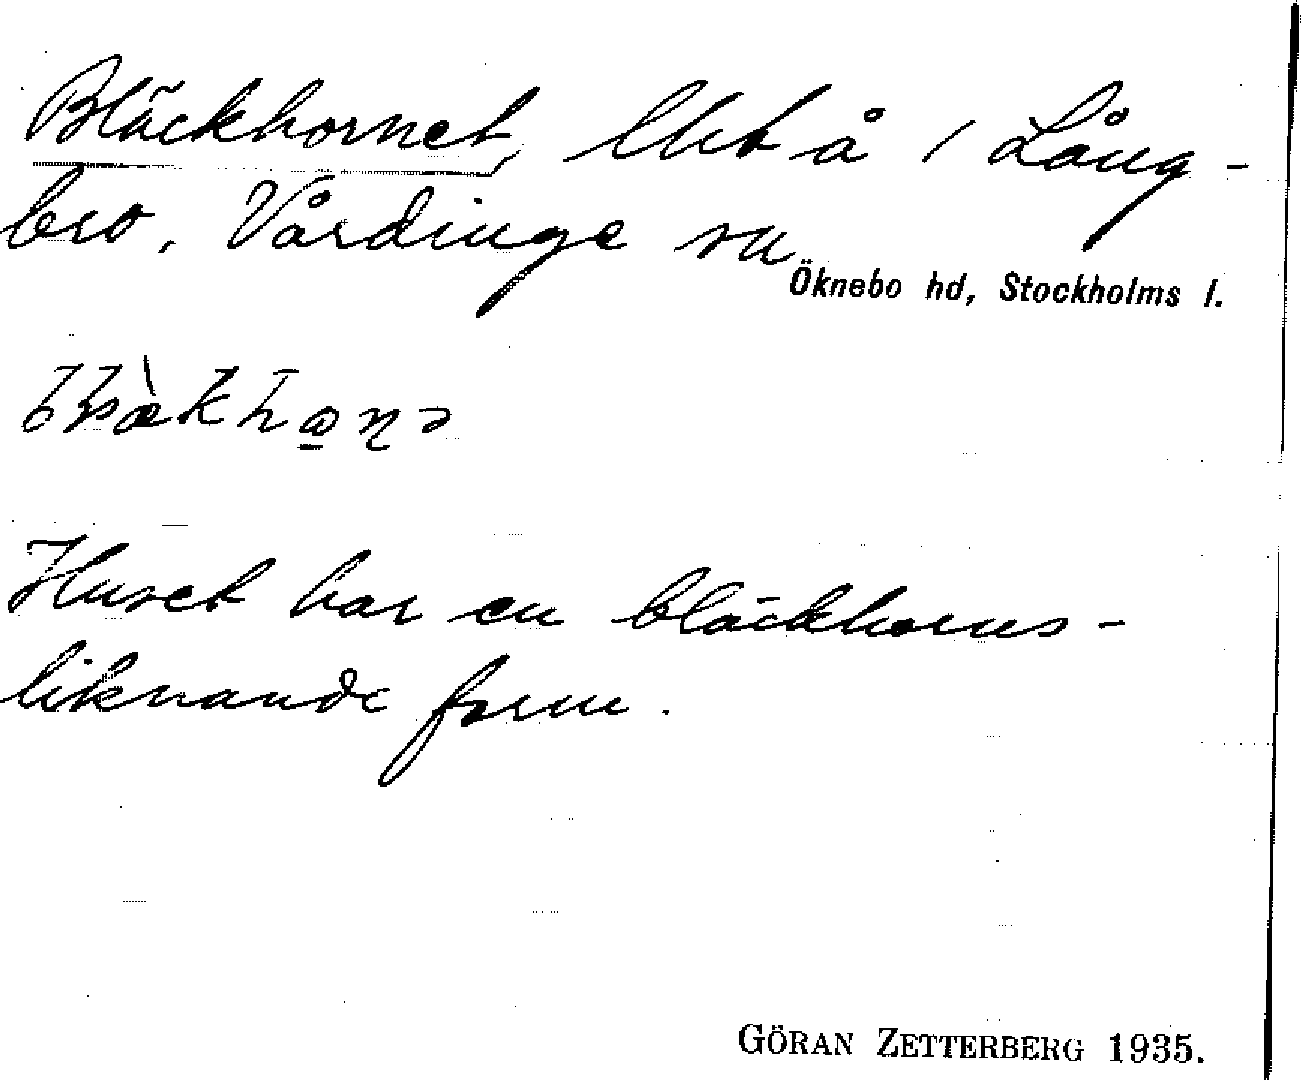 Bläckhornet, lht å / Lång-
bro, Vårdinge sn
Öknebo hd, Stockholms l.
Huset har en bläckhorns-
liknande form.
GÖRAN ZETTERBERG 1935.